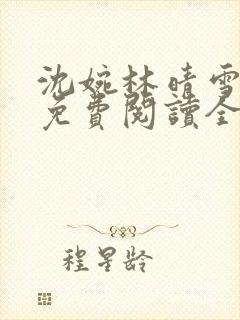 沈婉林晴雪
免費閱讀全
程星龄